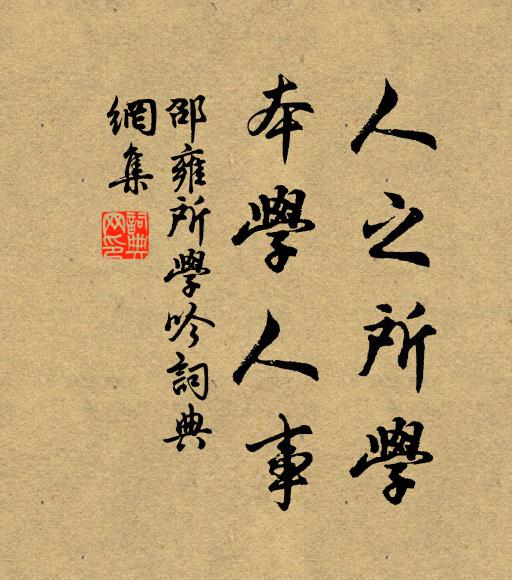 人之所學
本學人事
邵雍所學吟詞典
網集
詞典
网印